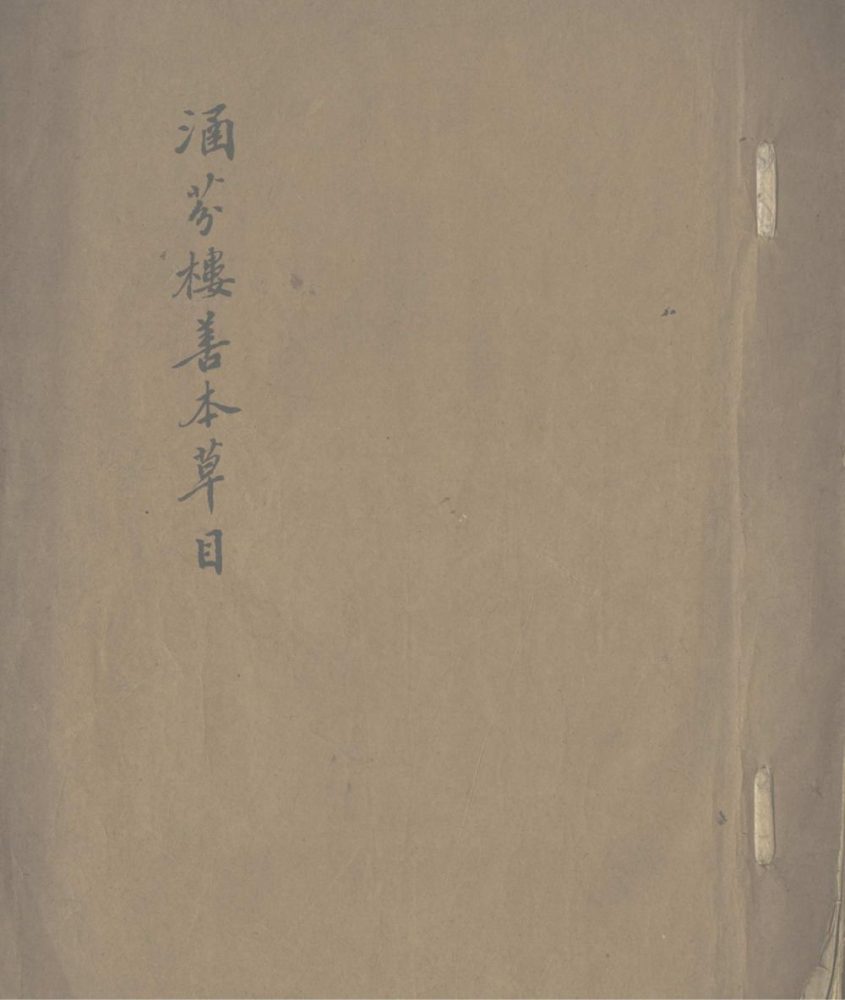 涵芬樓善本草目